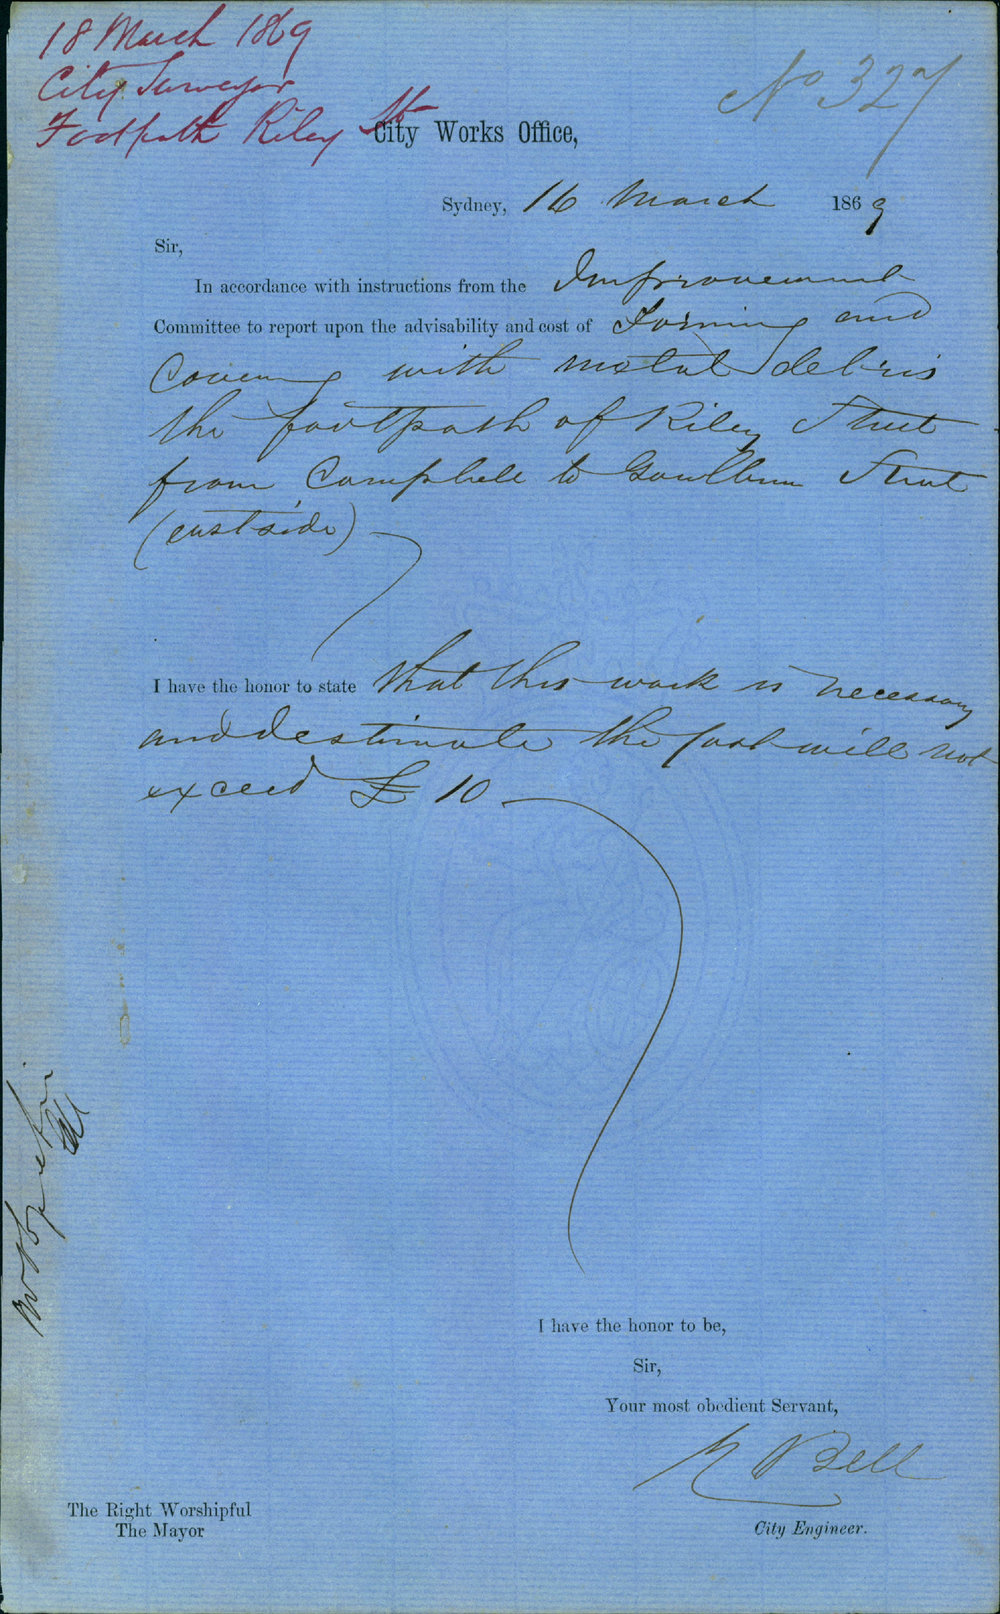 18 March 1869
City Surveyor
Footpath Riley St
No 327
City Works Office,
Sydney, 16 March 1869
Sir,
In accordance with instructions from the Improvement
Committee to report upon the advisability and cost of Forming and
Covering with metal debris
the footpath of Riley Street
from Campbell to Goulburn Street
(east side)
I have the honor to state that this work is necessary
and I estimate the cost will not
exceed £ 10
I have the honor to be,
Sir,
Your most obedient Servant,
E Bell
The Right Worshipful
The Mayor
City Engineer.